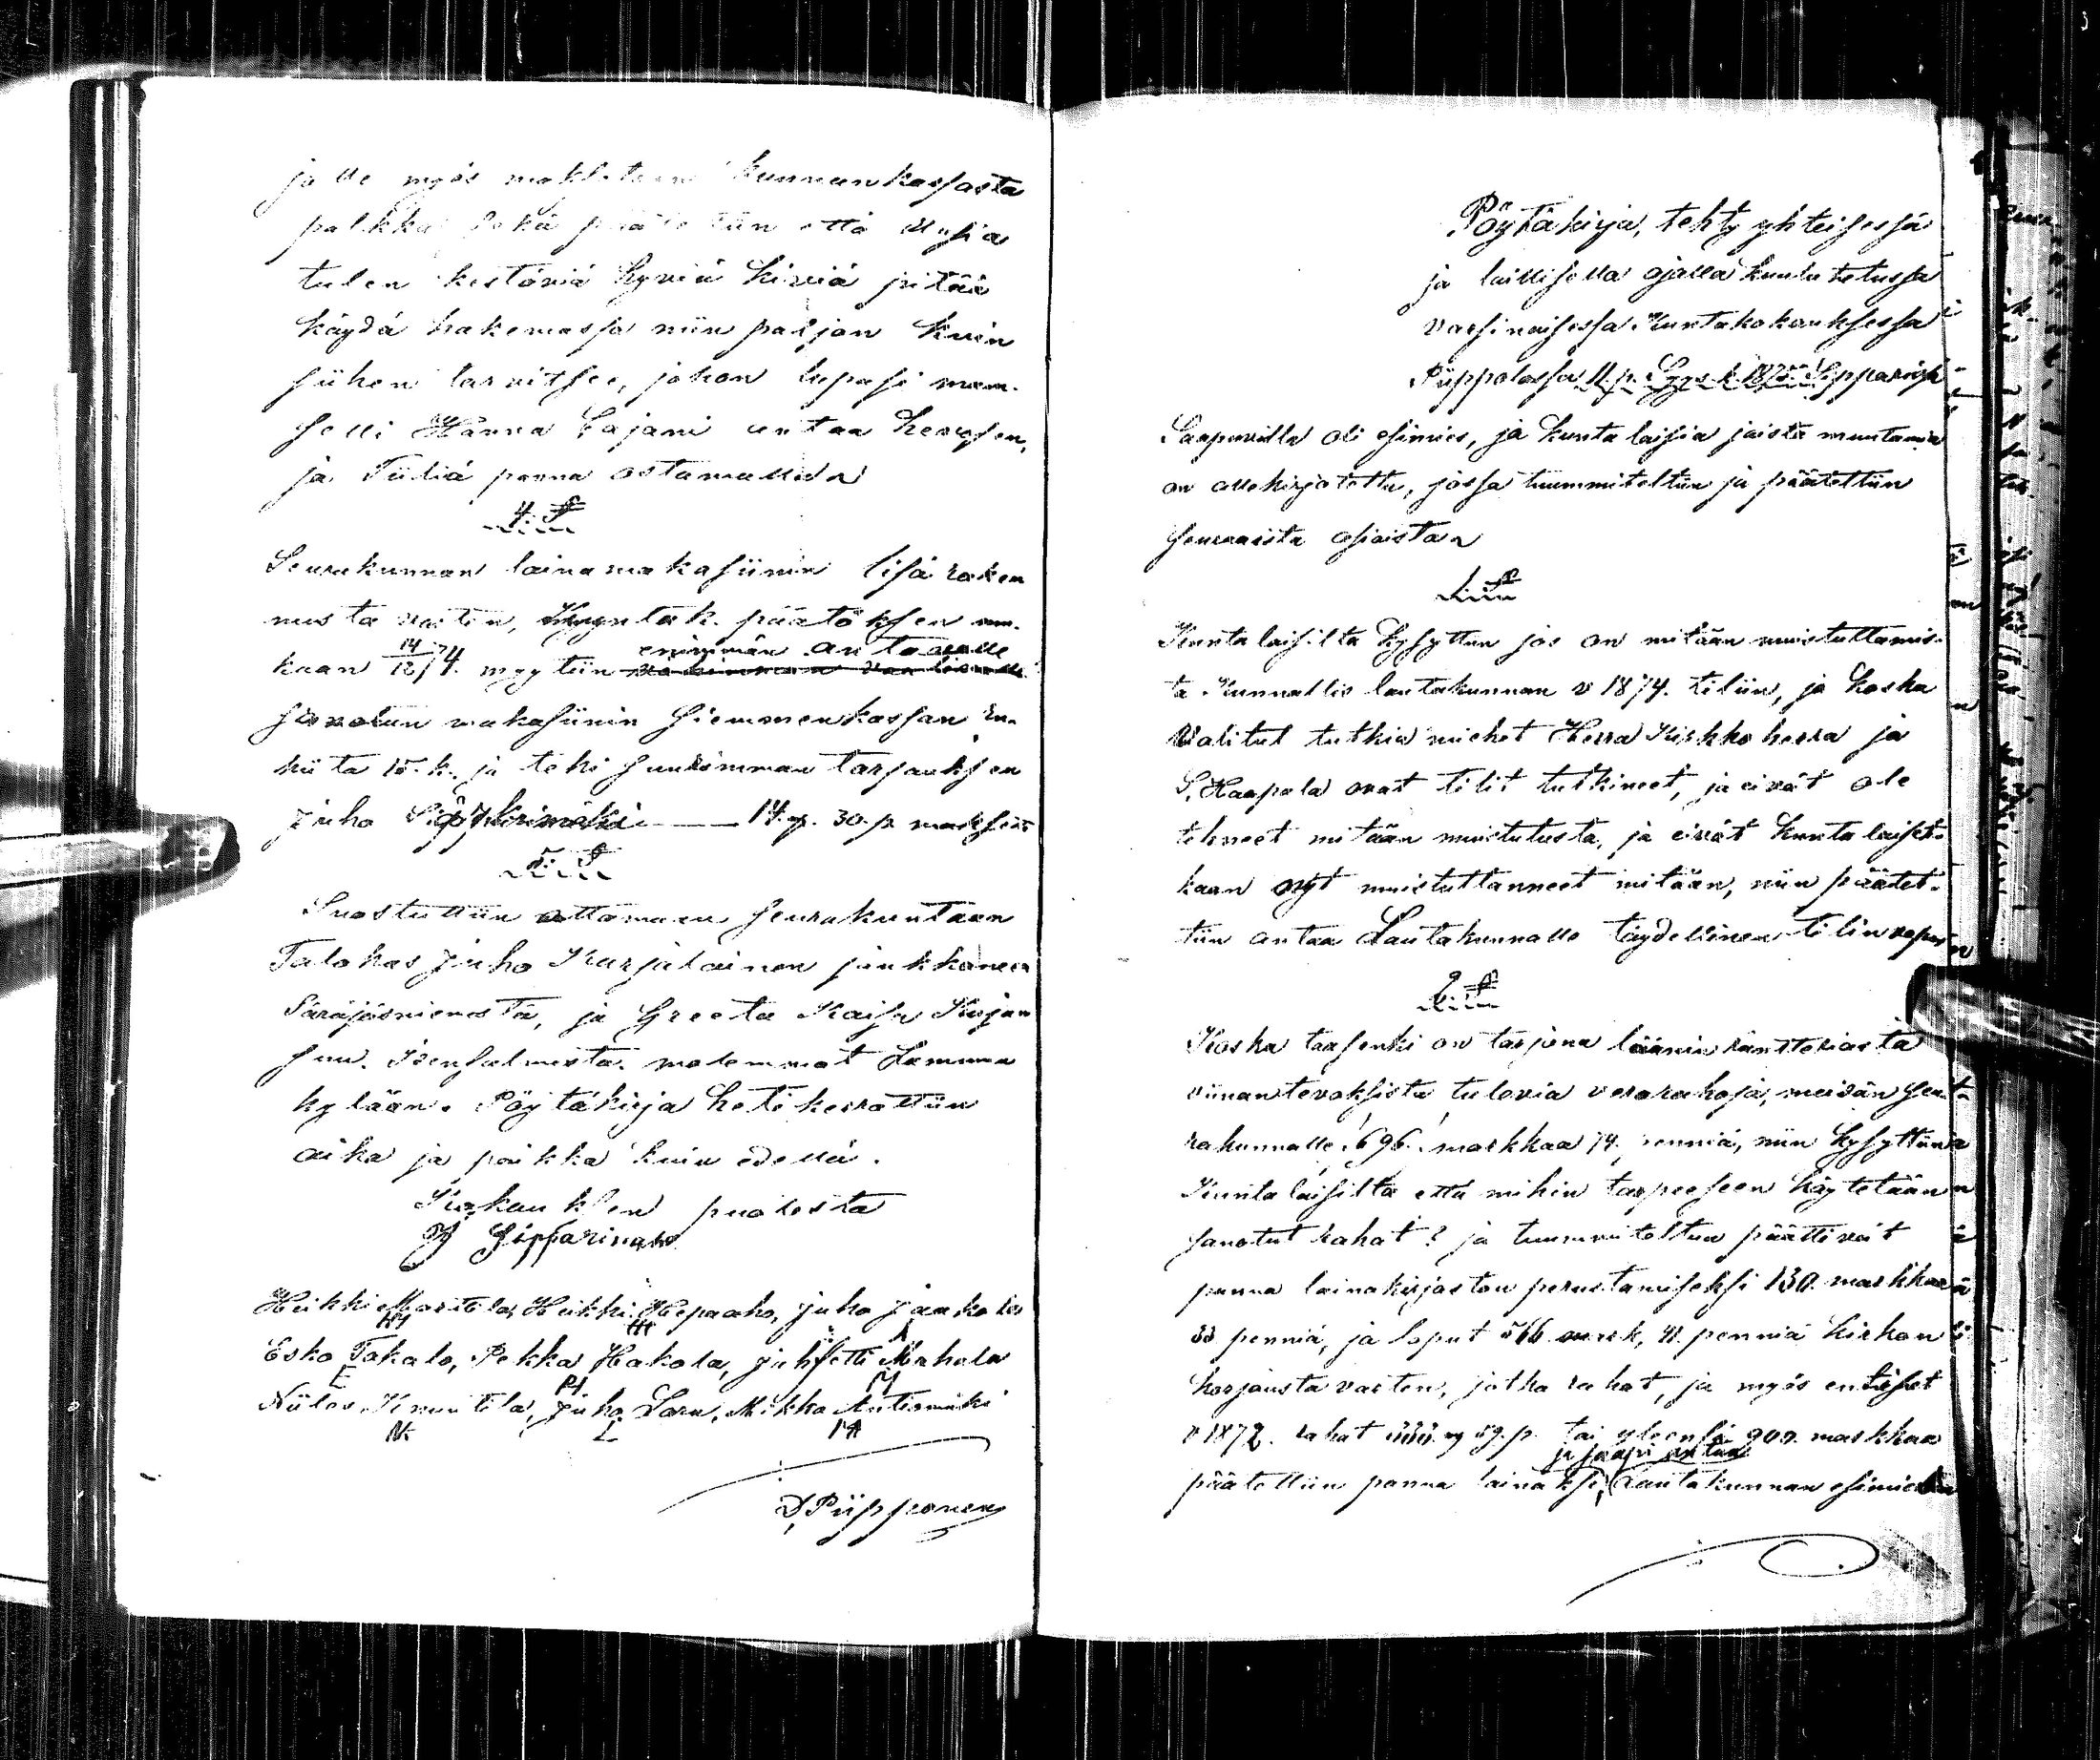 jolle myös maksetaan kunnankassasta
palkka sekä päätettiin että uusia
tulen kestäviä hyviä kiviä pitää
käydä hakemassa niin paljon kuin
siihen tarvitsee, johon lupasi mam-
selli Hanna Cajani antaa hevosen,
ja Tiiliä panna ostamalla
4. §
Seurakunnan lainamakasiinin lisä raken
nusta varten, Kuntak. päätöksen mu-
kaan 14/12 74. myytiin enimmän antavalle
makasiinin siemmenkassan ru-
kiita 15. k. ja teki suurimman tarjouksen
Juho 14. m. 30. p
5. §
Suostuttiin ottamaan seurakuntaan
Talokas Juho Karjalainen
Säräjäsniemestä, ja Greeta Kaisa
Iisensalmesta. molemmat Lamuun
kylään. Pöytäkirja heti kerrottiin
aika ja paikka kuin edellä.
Kokouksen puolesta
J Sipparinen
Heikki Marttila, Heikki Hepoaho, Juho Jaakola
HM HH
Esko Takalo, Pekka Hakola, Juhfetti Mahala
E PH M
Niilos Kinuttila, Juho Laru, Mikko Anttimäki
NK L MA
D, Piipponen
Pöytäkirja, tehty yhteisessä
ja laillisella ajalla kuulutetussa
varsinaisessa Kuntakokouksessa
Piippolassa 11. p. Syys k. 1875
Saapuvilla oli esimies, ja kuntalaisia joista muutamia
on allekirjotettu, jossa tuummiteltiin ja päätettiin
seuraavista asioista
1. §
Kuntalaisilta kysyttiin jos on mitään muistuttamis-
ta Kunnallis lautakunnan v 1874. tiliin, ja koska
Valitut tutkia miehet Herra Kirkkoherra ja
S. Haapala ovat tilit tutkineet, ja eivät ole
tehneet mitään muistutusta, ja eivät kuntalaiset-
kaan nyt muistuttanneet mitään, niin päätet-
tiin antaa Lautakunnalle täydellinen tilin vapaus
2. §
Koska taasenki on tarjona läänin ränttteriasta
viinanteoksista tulevia verorahoja, meidän seu-
rakunnalle 696. markkaa 74. penniä, niin kysyttiin
Kuntalaisilta että mihin tarpeeseen käytetään
sanotut rahat? ja tuummiteltua päättivät
panna lainakirjaston perustamiseksi 130. markkaa
33 penniä, ja loput 566 mark, 41. penniä kirkon
korjausta varten, jotka rahat, ja myös entiset
v 1872. rahat 333. m 59. p. tai yleensä 900. markkaa
ja saapi antaa
päätettiin panna lainaksi, Lautakunnan esimies